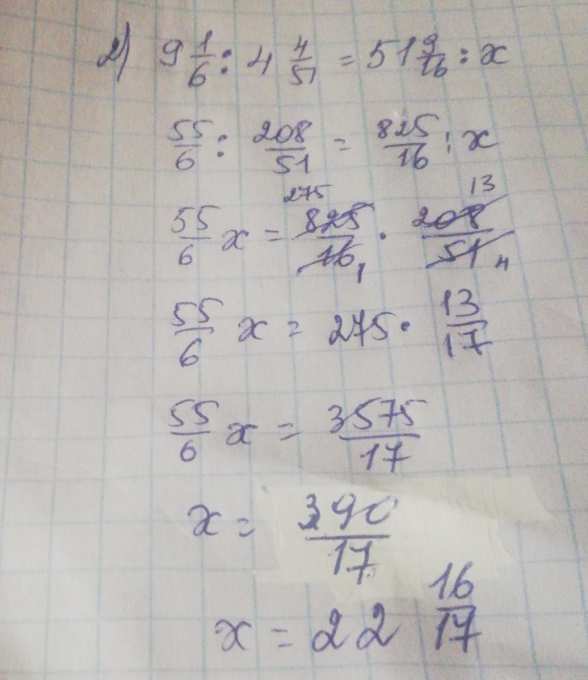 2) 9 1/6 : 4 4/51 = 51 9/16 : x
55/6 : 208/51 = 825/16 : x
275 13
55/6 x = 825/16 1 · 208/51 4
55/6 x = 275 · 13/17
55/6 x = 3575/17
x = 390/17
x = 22 16/17